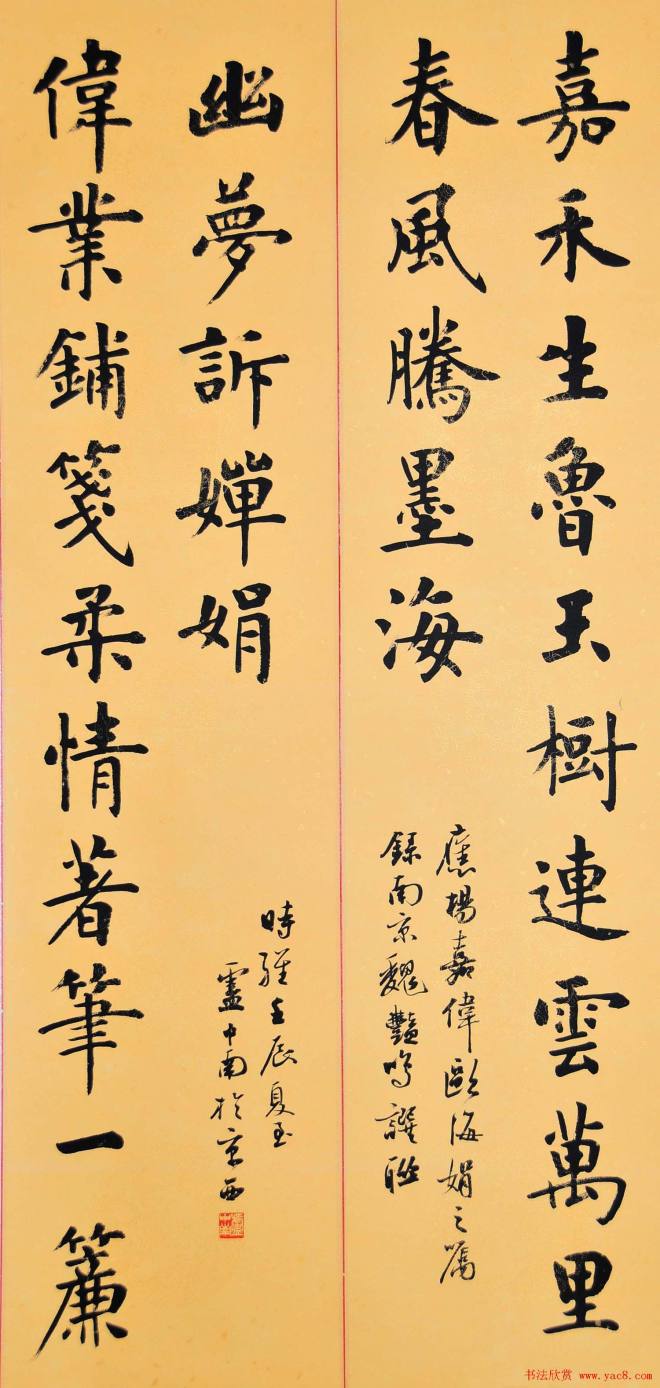 嘉禾生魯玉樹連雲萬里
春風騰墨海
應楊嘉偉歐海娟之囑
錄南京魏豔鳴譔聯
偉業鋪箋柔情著筆一簾
幽夢訴嬋娟
時維壬辰夏至
盧中南於京西
书法欣赏 www.yac8.com